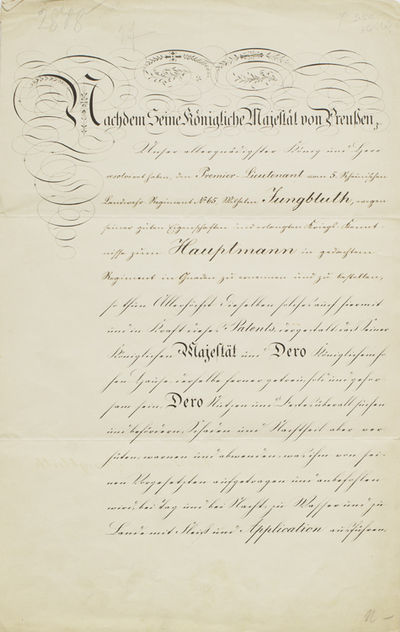 2878
Nachdem Seine Königliche Majestät von Preußen,
Unser allergnädigster König und Herr
resolvirt haben, den Premier-Lieutenant vom 5. Rheinischen
Landwehr Regiment No. 65 Wilhelm Jungbluth, wegen
seiner guten Eigenschaften und erlangten Kriegs-Kennt-
nisse zum Hauptmann in gedachtem
Regiment in Gnaden zu ernennen und zu bestellen,
so thun Allerhöchst Dieselben solches auch hiermit
und in Kraft dieses Patents, dergestalt daß Seiner
Königlichen Majestät und Dero Königlichem Ho-
hen Hause derselbe ferner getreu, hold und gehor-
sam sein, Dero Nutzen und Bestes überall suchen
und befördern, Schaden und Nachtheil aber ver-
hüten, warnen und abwenden, was ihm von sei-
nen Vorgesetzten aufgetragen und anbefohlen
wird, bei Tag und bei Nacht, zu Wasser und zu
Lande mit Fleiß und Application ausführen